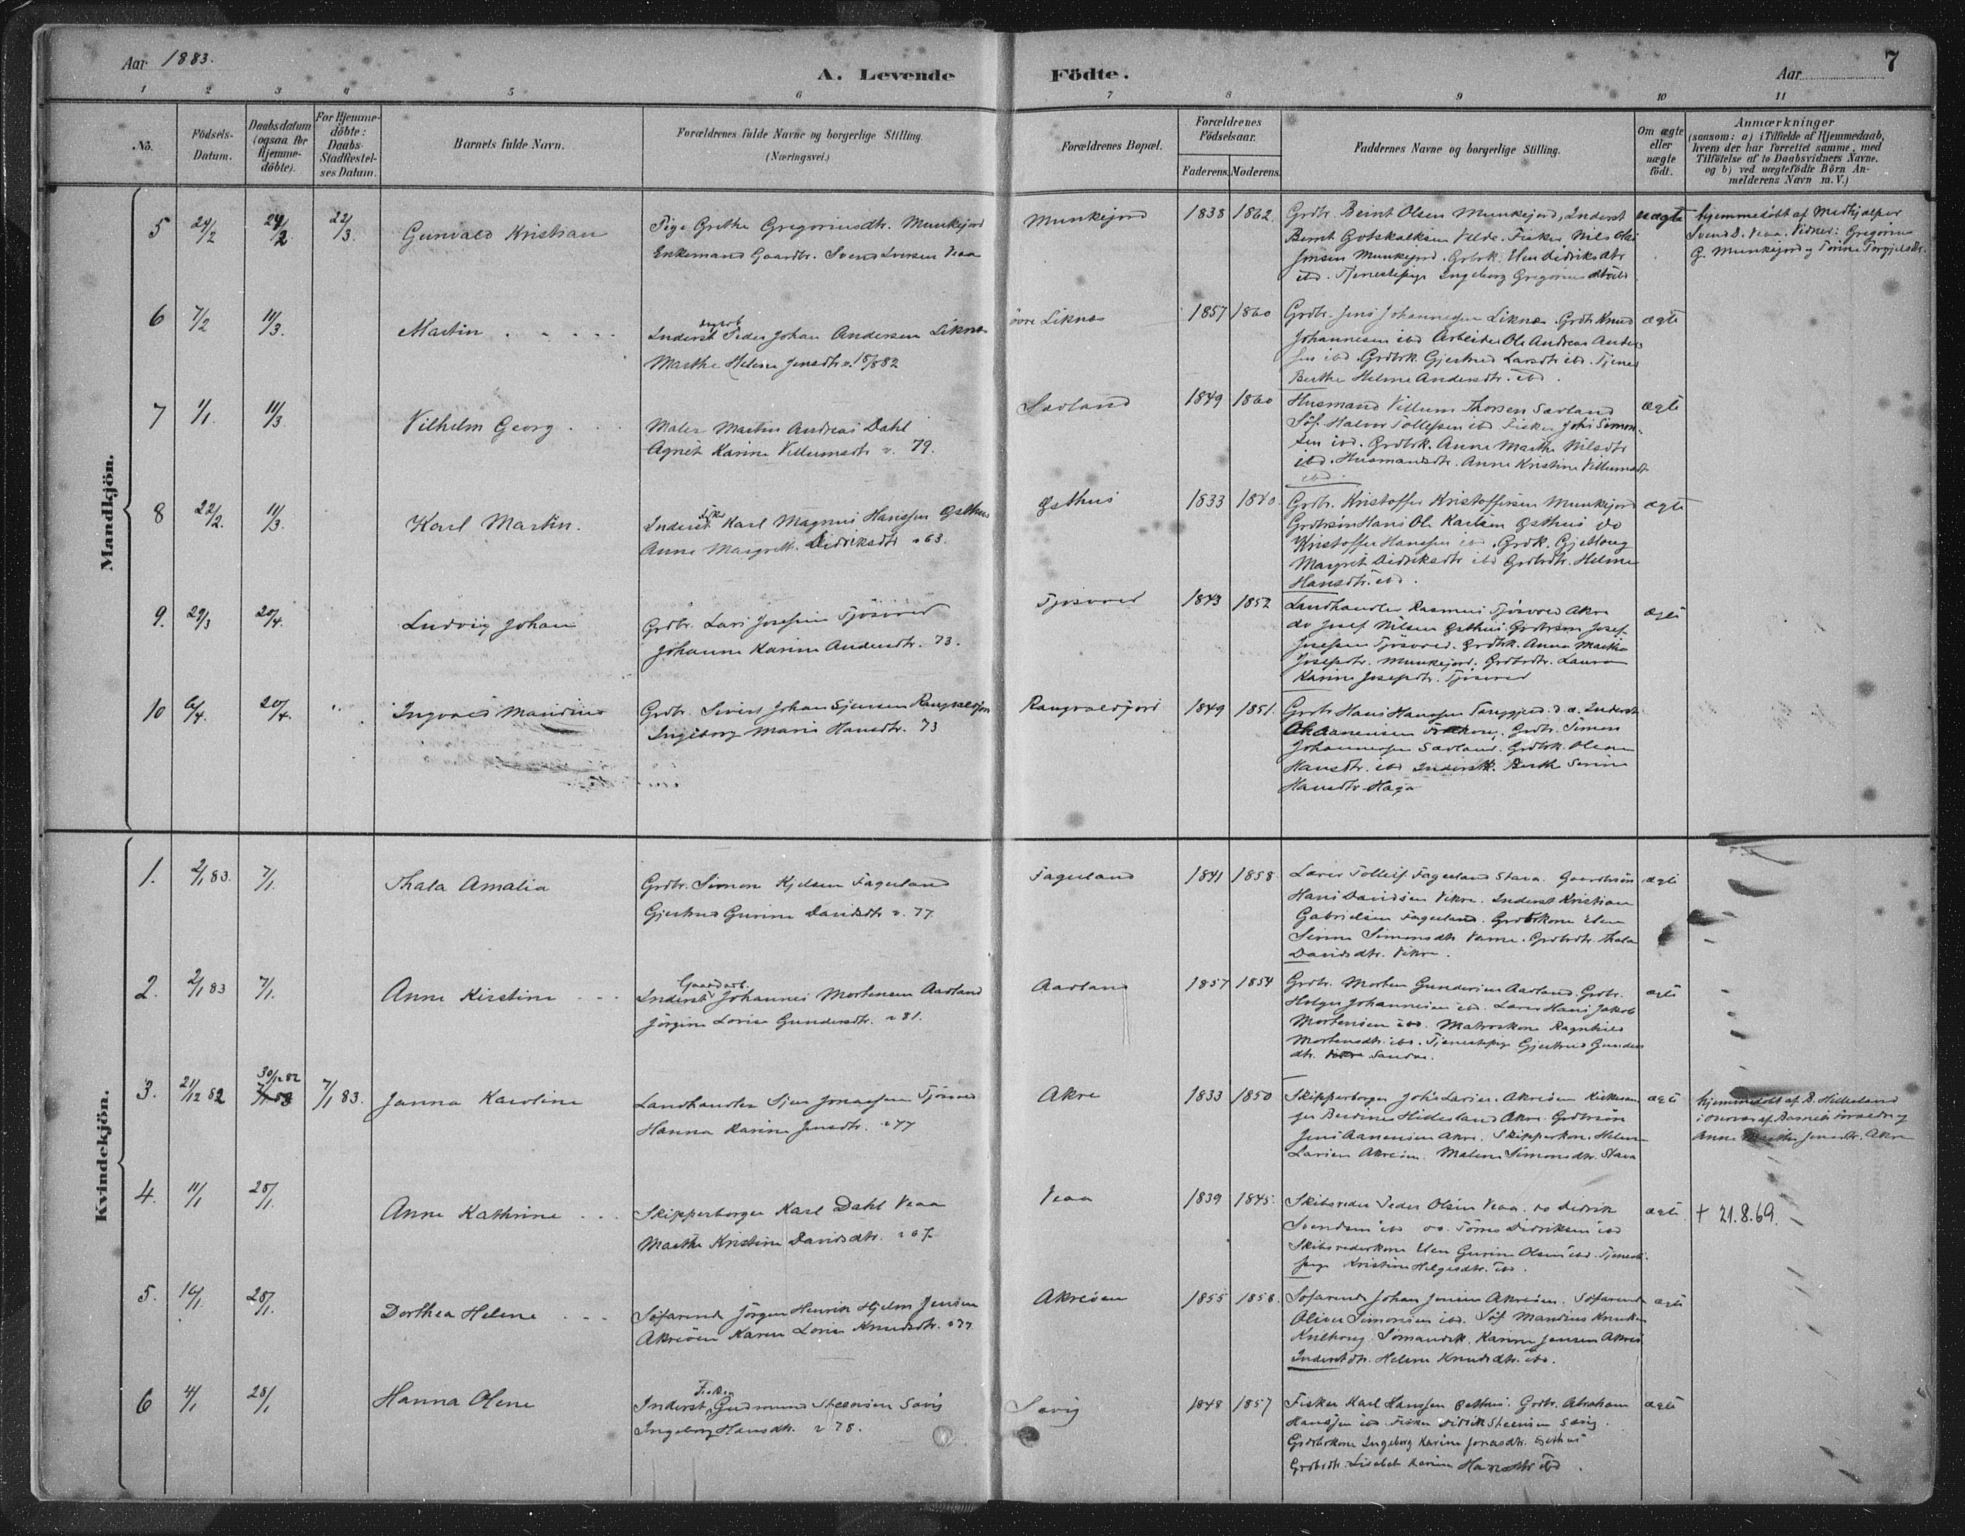 Aar 1883.
A. Levende Födte.
Aar
7
1 2 3 4 5 6 7 8 9 10 11
No.
Födsels-Datum.
Daabsdatum (ogsaa for Hjemme-döbte).
For Hjemme-döbte: Daabs-Stadfæstel-ses Datum.
Barnets fulde Navn.
Forældrenes fulde Navne og borgerlige Stilling.
(Næringsvei.)
Forældrenes Bopæl.
Forældrenes Födselsaar.
Faderens. Moderens.
Faddernes Navne og borgerlige Stilling.
Om ægte eller uægte födt.
Anmærkninger
(saasom: a) i Tilfælde af Hjemmedaab,
hvem der har forrettet samme, med
Tilföielse af to Daabsvidners Navne.
og b) ved uægtefödte Börn An-
melderens Navn m. V.)
Mandkjön.
5 24/2 24/2 22/3. Gunvald Kristian
Pige Grethe Gregoriusdtr. Munkejord
Enkemand Gaardbr. Svend Iversen Veaa
Munkejord 1838 1862
Grdbr. Bernt Olsen Munkejord, Inderst
Bernt Gotskalksen Velde. Fisker Nils Ole
Jensen Munkejord.
ibd. Tjenestepige Ingeborg Gregoriusdtr ibd
uægte
hjemmedöbt af Medhjælper
Svend D. Veaa. Vidner: Gregorius
G. Munkejord og Torine Torgjelsdtr.
6 7/2 11/3. Martin
Inderst Peder Johan Andersen Liknes
Marthe Helene Jensdtr v. 15/8 82
övre Liknes 1857 1860
Grdbr. Jens Johannesen Liknes. Grdbr Knud
Johannesen ibd Arbeider Ole Andreas Ander-
sen ibd. Grdbrk. Gjertrud Larsdtr ibd. Tjenes
Berthe Helene Andersdtr. ibd.
ægte
7 1/1. 11/3 Vilhelm Georg
Maler Martin Andreas Dahl
Agnet Karine Villumsdtr v. 79.
Sævland 1849 1860
Husmand Villum Thorsen Sævland
Söf. Halvor Tollefsen ibd Fisker Johs Simon-
sen ibd. Grdbrk. Anne Marthe Nilsdtr
ibd. Husmandsdtr. Anne Kristine Villumsdtr
ibd.
ægte
8 22/2. 11/3. Karl Martin.
Inderst Karl Magnus Hanssen Østhus
Anne Margrethe Didriksdtr v 63.
Østhus 1833 1840
Grdbr. Kristoffer Kristoffersen Munkejord
Grdbrsön Hans Ole Karlsen Østhus do
Kristoffer Hanssen ibd. Grdbk.
Margret Didriksdtr ibd Grdbrdtr. Helene
Hansdtr. ibd.
ægte
9. 29/3 20/4. Ludvig Johan
Grdbr. Lars Josefsen Tjösvold
Johanne Karine Andersdtr. 73.
Tjösvold 1843 1852
Landhandler Rasmus Tjösvold Akre
do Josef Nilsen Østhus. Grdbrsön Josef
Josefsen Tjösvold. Grdbk. Anna Marthe
Josefsdtr. Munkejord. Grdbrdtr. Laura
Karine Josefsdtr. Tjösvold
ægte
10 6/4. 20/4. Ingvald Mandius
Grdbr. Sivert Johan Sjursen Rangvaldsjord
Ingeborg Marie Hansdtr. 73
Rangvaldsjord 1849 1851.
Grdbr Hans Hanssen
Grdbr. Simon
Johannesen Sævland. Grdbrk. Oleane
Hansdtr. ibd Inderstk. Berthe Serine
Hansdtr Haga
Kvindekjön.
1. 2/1 83. 7/1. Thala Amalia
Grdbr. Simon Kjelsen Fagerland
Gjertrud Gurine Davidsdtr v. 77.
Fagerland 1841 1858.
Lærer Tollef Fagerland Stava. Gaardbrsön
Hans Davidsen Vikre. Inderst Kristian
Gabrielsen Fagerland. Grdbrkone Elen
Serine Simonsdtr Vanne. Grdbrdtr. Thala
Davidsdtr. Vikre.
ægte
2. 2/1 83 7/1. Anne Kirstine
Gaardarb.
Inderst Johannes Mortensen Aadland
Jörgine Lovise Gundersdtr. v 81.
Aadland 1857 1854
Grdbr. Morten Gundersen Aadland. Grdbr.
Holger Johannesen ibd. Lærer Hans Jakob
Mortensen ibd. Matroskone Ragnhild
Mortensdtr. ibd. Tjenestepige Gjertrud Gunders
dtr. Sandve.
ægte
3. 21/12 82 30/12 82 7/1 83. Janna Karoline
Landhandler Sjur Jonassen Tjösvold
Hanna Karine Jensdtr. v 77
Akre 1833 1850
Skipperborger Johs Larsen. Akreöen Kirkesan
ger Berdines Hilleland Akre. Grdbrsön
Jens Aanensen Akre. Skipperkone. Helene
Larsen Akreöen. Malene Simonsdtr. Stava
ægte
hjemmedöbt af B. Hilleland
i overvær af Barnets Forældre og
Anne Marthe Jensdtr. Akre
4. 11/1 28/1. Anne Kathrine
Skipperborger Karl Dahl Veaa
Marthe Kristine Davidsdtr. v 67.
Veaa 1839 1845.
Skibsreder Peder Olsen Veaa. do Didrik
Svendsen ibd do. Tönnes Didriksen ibd
Skibsrederkone Elen Gurine Olsen ibd. Tjeneste
pige Kristine Helgesdtr. ibd.
ægte † 21.8.69.
5. 16/1. 28/1. Dorthea Helene
Söfarende Jörgen Henrik Hjelm Jensen
Akreöen Karen Lovise Knudsdtr. v 77.
Akreöen 1855 1858.
Söfarende Johan Jensen Akreöen. Söfarende
Oliver Simonsen ibd. Söf Mandius Knudsen
Kulhoug. Sömandsk. Karine Jensen Akreö
Inderstdtr. Helene Knudsdtr. ibd.
ægte
6 4/1 28/1 Hanna Olene
Fisker
Inderst Gudmund Steensen Sævig
Ingeborg Hansdtr. v 78.
Sævig 1848 1857
Fisker Karl Hanssen Østhus. Grdbr. Abraham
Hanssen ibd Fisker Didrik Steensen Sævig.
Grdbrkone Ingeborg Karine Jonasdtr. Østhus
Grdbrdtr. Lisebet Karine Hansdtr ibd.
ægte